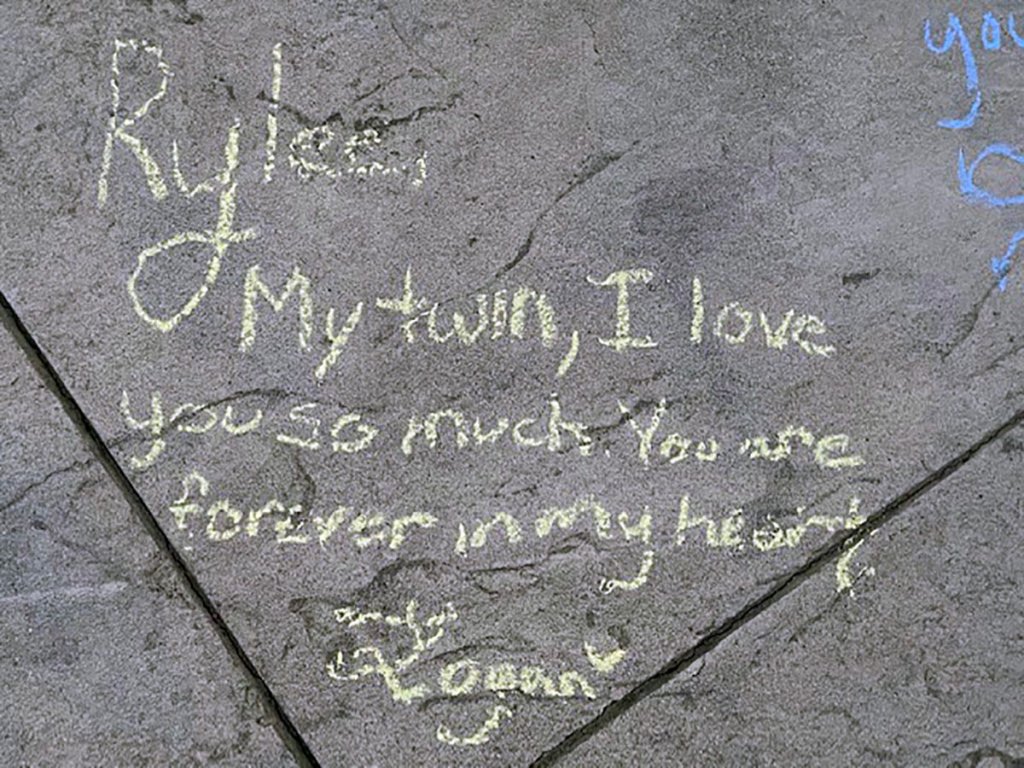 Rylee,
My twin, I love
you so much. You are
forever in my heart,
Logan
you